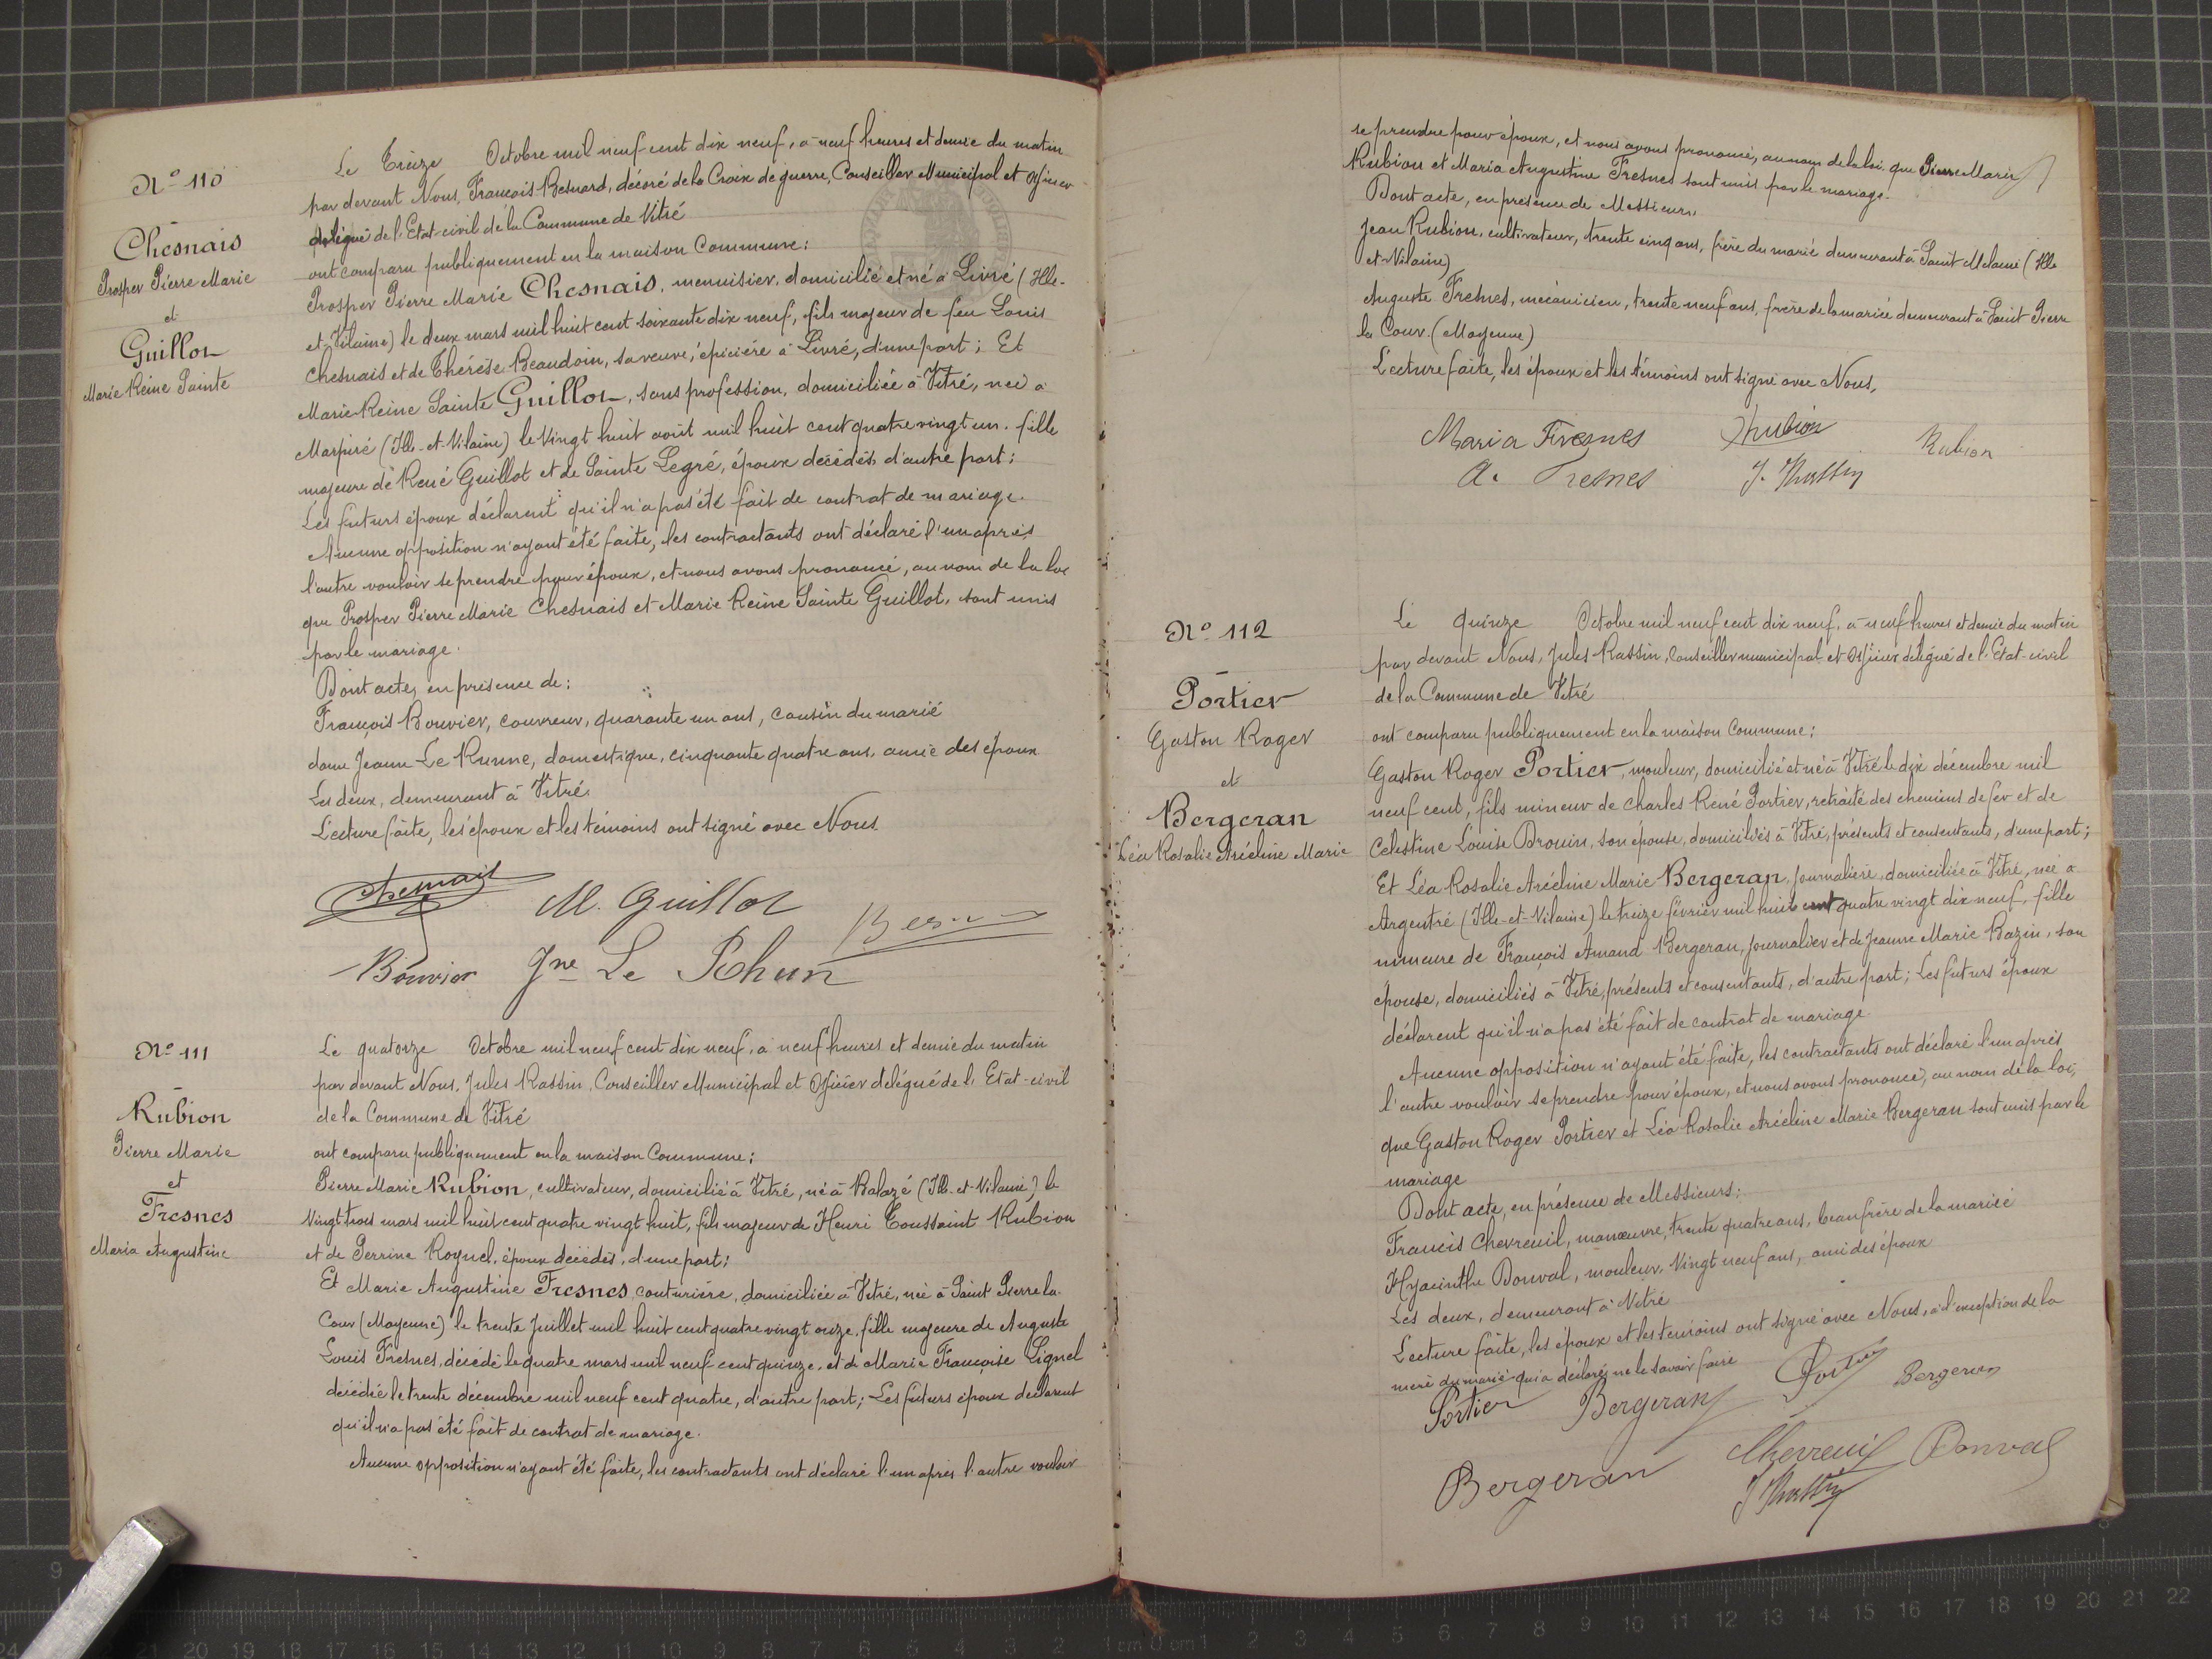 N° 110
Chesnais
Prosper Pierre Marie
et
Guillot
Marie Reine Sainte
Le Treize Octobre mil neuf cent dix neuf, à neuf heures et demie du matin
par devant Nous, François Besnard, décoré de la Croix de guerre, Conseiller Municipal et Officier
délégué de l'Etat-civil de la Commune de Vitré
ont comparu publiquement en la maison Commune:
Prosper Pierre Marie Chesnais, menuisier, domicilié et né à Livré (Ille-
et-Vilaine) le deux mars mil huit cent soixante dix neuf, fils majeur de feu Louis
Chesnais et de Thérèse Beaudoin, sa veuve, épicière à Livré, d'une part; Et
Marie Reine Sainte Guillot, sans profession, domiciliée à Vitré, née à
Marpiré (Ille-et-Vilaine) le Vingt huit août mil huit cent quatre vingt un. fille
majeure de René Guillot et de Sainte Legré, époux décédés, d'autre part;
Les futurs époux déclarent qu'il n'a pas été fait de contrat de mariage.
Aucune opposition n'ayant été faite, les contractants ont déclaré l'un après
l'autre vouloir se prendre pour époux, et nous avons prononcé, au nom de la loi
que Prosper Pierre Marie Chesnais et Marie Reine Sainte Guillot, sont unis
par le mariage.
Dont acte, en présence de:
François Bouvier, couvreur, quarante un ans, cousin du marié
dame Jeanne Le Runne, domestique, cinquante quatre ans, amie des époux
Les deux, demeurant à Vitré.
Lecture faite, les époux et les témoins ont signé avec Nous
Chesnais M. Guillot
Bouvier Jne Le Rhun
N° 111
Rubion
Pierre Marie
et
Fresnes
Maria Augustine
Le quatorze Octobre mil neuf cent dix neuf, à neuf heures et demie du matin
par devant Nous, Jules Rassin, Conseiller Municipal et Officier délégué de l'Etat-civil
de la Commune de Vitré
ont comparu publiquement en la maison Commune;
Pierre Marie Rubion, cultivateur, domicilié à Vitré, né à Balazé (Ille-et-Vilaine) le
Vingt trois mars mil huit cent quatre vingt huit, fils majeur de Henri Toussaint Rubion
et de Perrine Roynel, époux décédés, d'une part;
Et Maria Augustine Fresnes, couturière, domiciliée à Vitré, née à Saint Pierre la
Cour (Mayenne) le trente Juillet mil huit cent quatre vingt onze, fille majeure de Auguste
Louis Fresnes, décédé le quatre mars mil neuf cent quinze, et de Marie Françoise Lignel
décédée le trente décembre mil neuf cent quatre, d'autre part; Les futurs époux déclarent
qu'il n'a pas été fait de contrat de mariage.
Aucune opposition n'ayant été faite, les contractants ont déclaré l'un après l'autre vouloir
se prendre pour époux, et nous avons prononcé, au nom de la loi que Pierre Marie
Rubion et Maria Augustine Fresnes sont unis par le mariage.
Dont acte, en présence de Messieurs,
Jean Rubion, cultivateur, trente cinq ans, frère du marié demeurant à Saint Melaine (Ille
et-Vilaine)
Auguste Fresnes, mécanicien, trente neuf ans, frère de la mariée demeurant à Saint Pierre
la Cour. (Mayenne)
Lecture faite, les époux et les témoins ont signé avec Nous,
Maria Fresnes Rubion Rubion
A. Fresnes J. Rassin
N° 112
Portier
Gaston Roger
et
Bergeran
Léa Rosalie Arcéline Marie
Le quinze Octobre mil neuf cent dix neuf, à neuf heures et demie du matin
par devant Nous, Jules Rassin, Conseiller municipal et Officier délégué de l'Etat-civil
de la Commune de Vitré
ont comparu publiquement en la maison Commune;
Gaston Roger Portier, mouleur, domicilié et né à Vitré le dix décembre mil
neuf cent, fils mineur de Charles René Portier, retraité des chemins de fer et de
Celestine Louise Drouin, son épouse, domiciliés à Vitré, présents et consentants, d'une part;
Et Léa Rosalie Arcéline Marie Bergeran, Journalière, domiciliée à Vitré, née à
Argentré (Ille-et-Vilaine) le treize février mil huit cent quatre vingt dix neuf, fille
mineure de François Amand Bergeran, Journalier et de Jeanne Marie Bazin, son
épouse, domiciliés à Vitré, présents et consentants, d'autre part; Les futurs époux
déclarent qu'il n'a pas été fait de contrat de mariage.
Aucune opposition n'ayant été faite, les contractants ont déclaré l'un après
l'autre vouloir se prendre pour époux, et nous avons prononcé, au nom de la loi,
que Gaston Roger Portier et Léa Rosalie Arcéline Marie Bergeran sont unis par le
mariage
Dont acte, en présence de Messieurs;
Francis Chevreuil, manœuvre, trente quatre ans, beau frère de la mariée
Hyacinthe Donval, mouleur, Vingt neuf ans, ami des époux
Les deux, demeurant à Vitré
Lecture faite, les époux et les témoins ont signé avec Nous, à l'exception de la
mère du marié qui a déclaré ne le savoir faire
Portier Bergeran Portier Bergeran
Bergeran Chevreuil Donval
J. Rassin